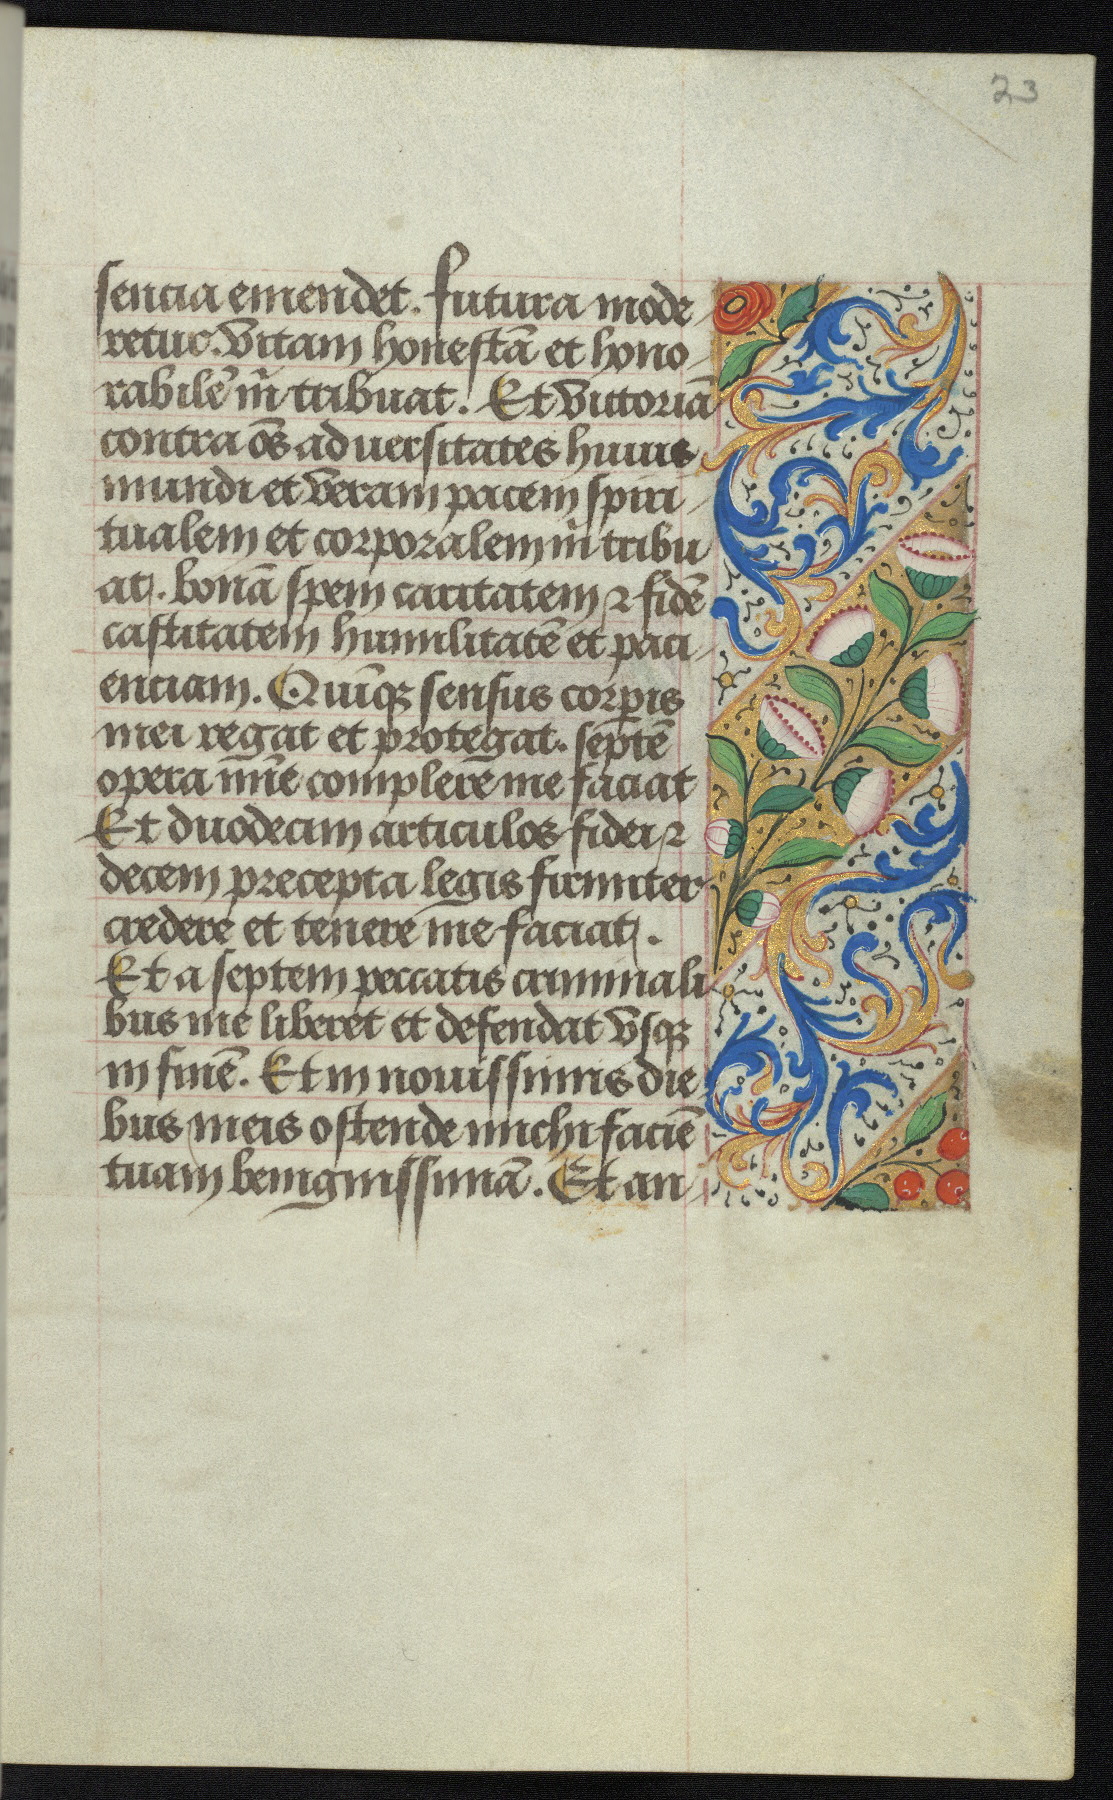 23
sencia emendet. futura mode
retur. Vitam honestā et hono
rabilē m̄ tribuat. Et victoriā
contra oēs adversitates huius
mundi et veram pacem spiri
tualem et corporalem m̄ tribu
at. bonā spem caritatem ⁊ fidē
castitatem humilitatē et paci
enciam. Quīqꝫ sensus corpis
mei regat et protegat. septē
opera mīe complere me faciat
Et duodecim articulos fidei ⁊
decem precepta legis firmiter
credere et tenere me faciat.
Et a septem peccatis criminali
bus me liberet et defendat vsqꝫ
in finē. Et in novissimis die
bus meis ostende michi faciē
tuam benignissimā. Et an